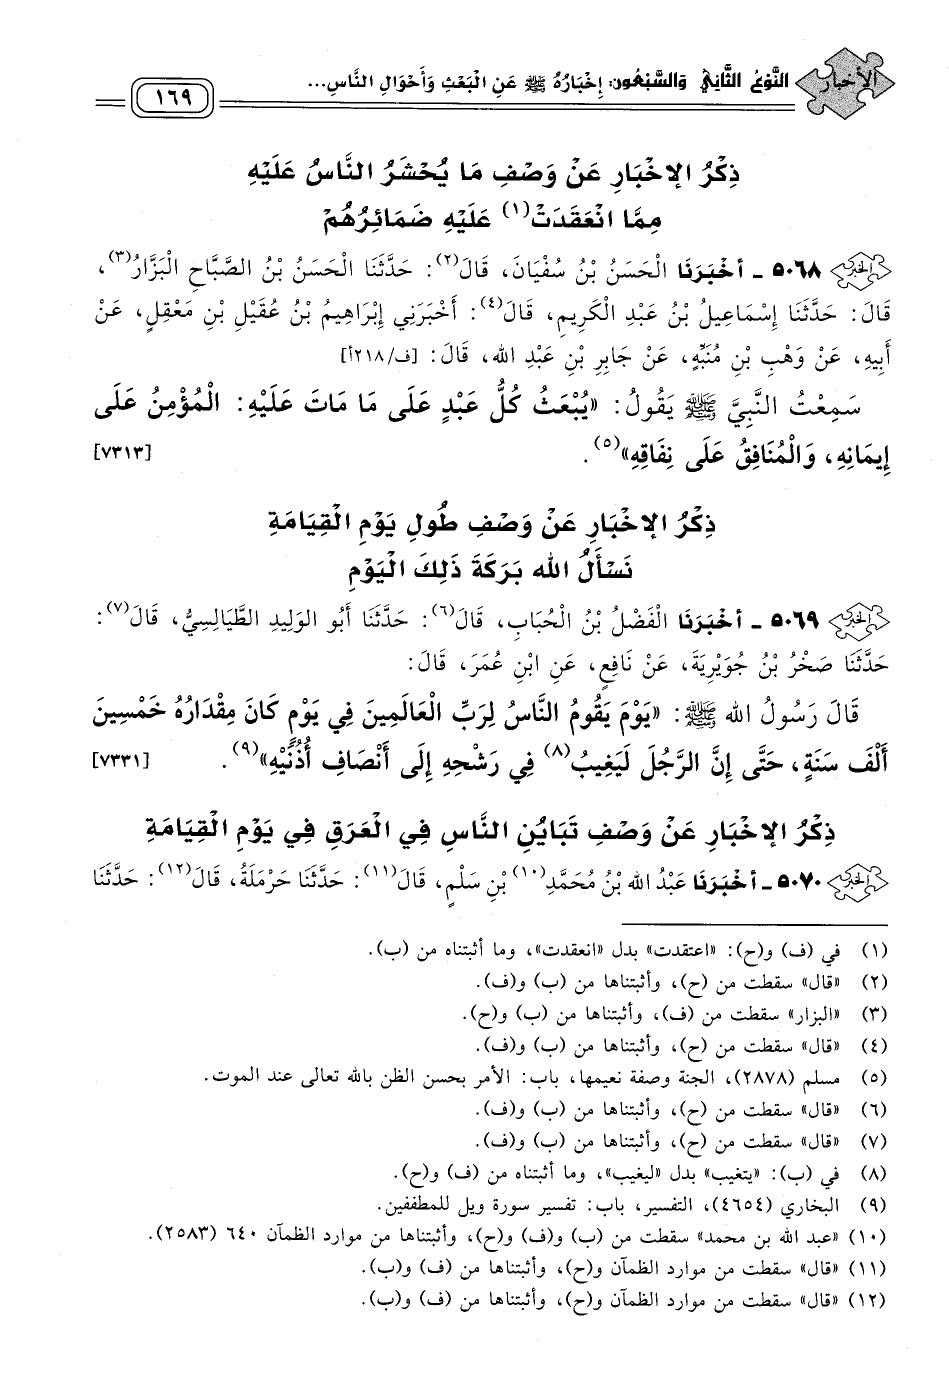 الأخبار
النَّوْعُ الثَّانِي وَالسَّبْعُون: إِخْبَارُهُ ﷺ عَنِ الْبَعْثِ وَأَحْوَالِ النَّاسِ...
١٦٩
ذِكْرُ الإِخْبَارِ عَنْ وَصْفِ مَا يُحْشَرُ النَّاسُ عَلَيْهِ
مِمَّا انْعَقَدَتْ(١) عَلَيْهِ ضَمَائِرُهُمْ
٥٠٦٨ - أَخْبَرَنَا الْحَسَنُ بْنُ سُفْيَانَ، قَالَ(٢): حَدَّثَنَا الْحَسَنُ بْنُ الصَّبَّاحِ الْبَزَّارُ(٣)،
قَالَ: حَدَّثَنَا إِسْمَاعِيلُ بْنُ عَبْدِ الْكَرِيمِ، قَالَ(٤): أَخْبَرَنِي إِبْرَاهِيمُ بْنُ عُقَيْلِ بْنِ مَعْقِلٍ، عَنْ
أَبِيهِ، عَنْ وَهْبِ بْنِ مُنَبِّهٍ، عَنْ جَابِرِ بْنِ عَبْدِ اللهِ، قَالَ: [ف/٢١٨أ]
سَمِعْتُ النَّبِيَّ ﷺ يَقُولُ: «يُبْعَثُ كُلُّ عَبْدٍ عَلَى مَا مَاتَ عَلَيْهِ: الْمُؤْمِنُ عَلَى
إِيمَانِهِ، وَالْمُنَافِقُ عَلَى نِفَاقِهِ»(٥). [٧٣١٣]
ذِكْرُ الإِخْبَارِ عَنْ وَصْفِ طُولِ يَوْمِ الْقِيَامَةِ
نَسْأَلُ اللهَ بَرَكَةَ ذَلِكَ الْيَوْمِ
٥٠٦٩ - أَخْبَرَنَا الْفَضْلُ بْنُ الْحُبَابِ، قَالَ(٦): حَدَّثَنَا أَبُو الْوَلِيدِ الطَّيَالِسِيُّ، قَالَ(٧):
حَدَّثَنَا صَخْرُ بْنُ جُوَيْرِيَةَ، عَنْ نَافِعٍ، عَنِ ابْنِ عُمَرَ، قَالَ:
قَالَ رَسُولُ اللهِ ﷺ: «يَوْمَ يَقُومُ النَّاسُ لِرَبِّ الْعَالَمِينَ فِي يَوْمٍ كَانَ مِقْدَارُهُ خَمْسِينَ
أَلْفَ سَنَةٍ، حَتَّى إِنَّ الرَّجُلَ لَيَغِيبُ(٨) فِي رَشْحِهِ إِلَى أَنْصَافِ أُذُنَيْهِ»(٩). [٧٣٣١]
ذِكْرُ الإِخْبَارِ عَنْ وَصْفِ تَبَايُنِ النَّاسِ فِي الْعَرَقِ فِي يَوْمِ الْقِيَامَةِ
٥٠٧٠ - أَخْبَرَنَا عَبْدُ اللهِ بْنُ مُحَمَّدِ(١٠) بْنِ سَلْمٍ، قَالَ(١١): حَدَّثَنَا حَرْمَلَةُ، قَالَ(١٢): حَدَّثَنَا
(١) في (ف) و(ح): «اعتقدت» بدل «انعقدت»، وما أثبتناه من (ب).
(٢) «قال» سقطت من (ح)، وأثبتناها من (ب) و(ف).
(٣) «البزار» سقطت من (ف)، وأثبتناها من (ب) و(ح).
(٤) «قال» سقطت من (ح)، وأثبتناها من (ب) و(ف).
(٥) مسلم (٢٨٧٨)، الجنة وصفة نعيمها، باب: الأمر بحسن الظن بالله تعالى عند الموت.
(٦) «قال» سقطت من (ح)، وأثبتناها من (ب) و(ف).
(٧) «قال» سقطت من (ح)، وأثبتناها من (ب) و(ف).
(٨) في (ب): «يتغيب» بدل «ليغيب»، وما أثبتناه من (ف) و(ح).
(٩) البخاري (٤٦٥٤)، التفسير، باب: تفسير سورة ويل للمطففين.
(١٠) «عبد الله بن محمد» سقطت من (ب) و(ف) و(ح)، وأثبتناها من موارد الظمآن ٦٤٠ (٢٥٨٣).
(١١) «قال» سقطت من موارد الظمآن و(ح)، وأثبتناها من (ف) و(ب).
(١٢) «قال» سقطت من موارد الظمآن و(ح)، وأثبتناها من (ف) و(ب).